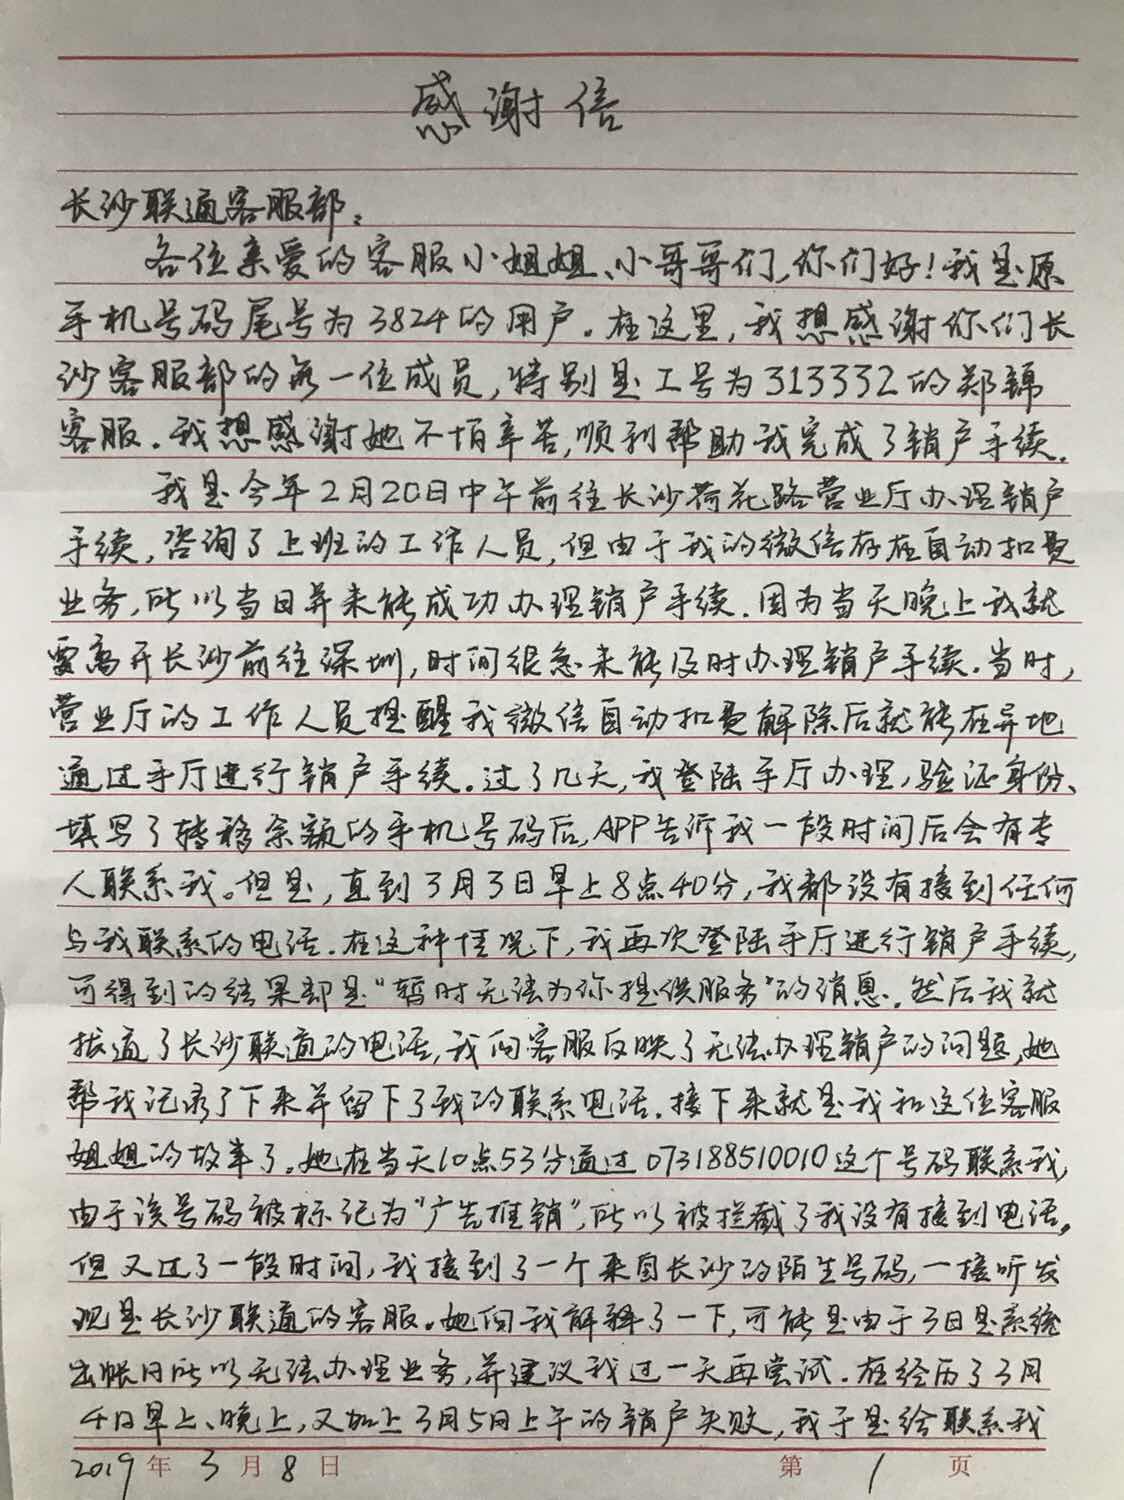 感谢信
长沙联通客服部：
各位亲爱的客服小姐姐、小哥哥们，你们好！我是原
手机号码尾号为3824的用户。在这里，我想感谢你们长
沙客服部的每一位成员，特别是工号为313332的郑锦
客服。我想感谢她不怕辛苦，顺利帮助我完成了销户手续。
我是今年2月20日中午前往长沙荷花路营业厅办理销户
手续，咨询了上班的工作人员，但由于我的微信存在自动扣费
业务，所以当日并未能成功办理销户手续。因为当天晚上我就
要离开长沙前往深圳，时间很急未能及时办理销户手续。当时，
营业厅的工作人员提醒我微信自动扣费解除后就能在异地
通过手厅进行销户手续。过了几天，我登陆手厅办理，验证身份、
填写了转移余额的手机号码后，APP告诉我一段时间后会有专
人联系我。但是，直到3月3日早上8点40分，我都没有接到任何
与我联系的电话。在这种情况下，我再次登陆手厅进行销户手续，
可得到的结果却是“暂时无法为你提供服务”的消息。然后我就
拨通了长沙联通的电话，我向客服反映了无法办理销户的问题，她
帮我记录了下来并留下了我的联系电话。接下来就是我和这位客服
姐姐的故事了。她在当天10点53分通过073188510010这个号码联系我，
由于该号码被标记为“广告推销”，所以被拦截了我没有接到电话。
但又过了一段时间，我接到了一个来自长沙的陌生号码，一接听发
现是长沙联通的客服。她向我解释了一下，可能是由于3日是系统
出帐日所以无法办理业务，并建议我过一天再尝试。在经历了3月
4日早上、晚上，又加上3月5日上午的销户失败，我于是给联系我
2019年3月8日 第1页